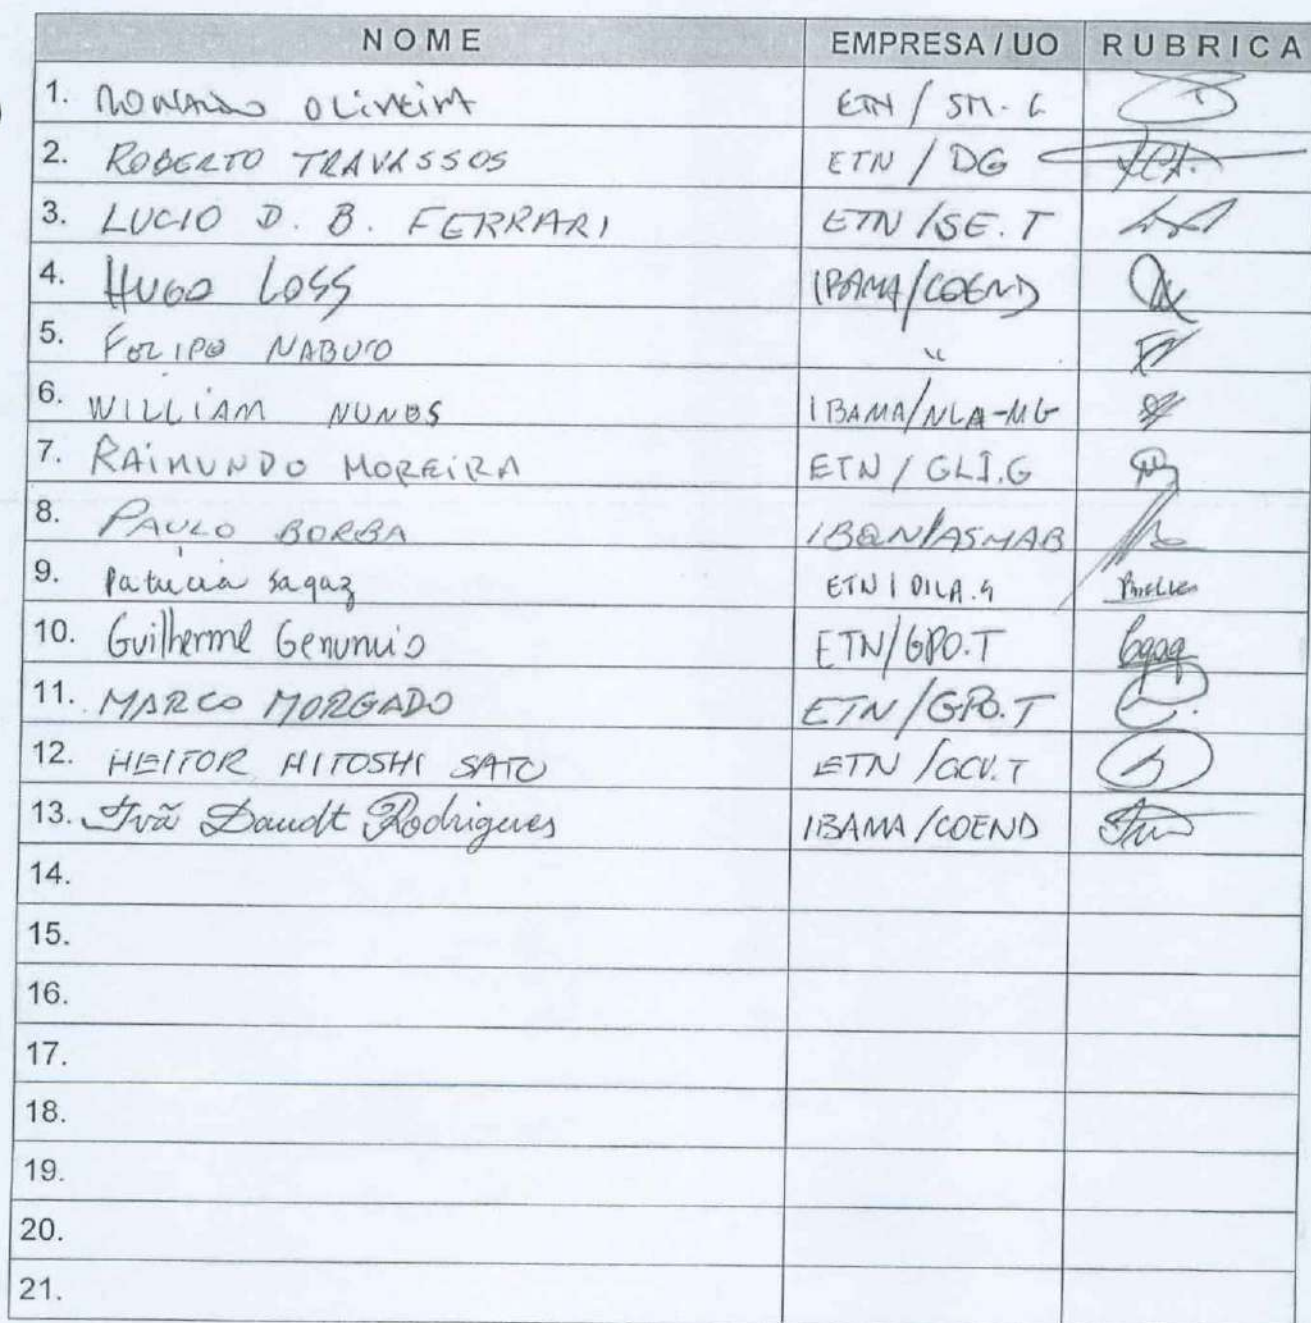 NOME EMPRESA / UO RUBRICA
1. RONALDO OLIVEIRA ETN / SM.
2. ROBERTO TRAVASSOS ETN / DG
3. LUCIO D. B. FERRARI ETN / SE.T
4. HUGO LOSS IBAMA/COEND
5. FELIPE NABUCO "
6. WILLIAM NUNES IBAMA/NLA-MG
7. RAIMUNDO MOREIRA ETN / GLI.G
8. PAULO BORBA
9. Patricia Sagaz ETN
10. Guilherme Genuncio ETN/GPO.T
11. MARCO MORGADO ETN/GPO.T
12. HEITOR HITOSHI SATO ETN /GCV.T
13. Ivã Daudt Rodrigues IBAMA/COEND
14.
15.
16.
17.
18.
19.
20.
21.